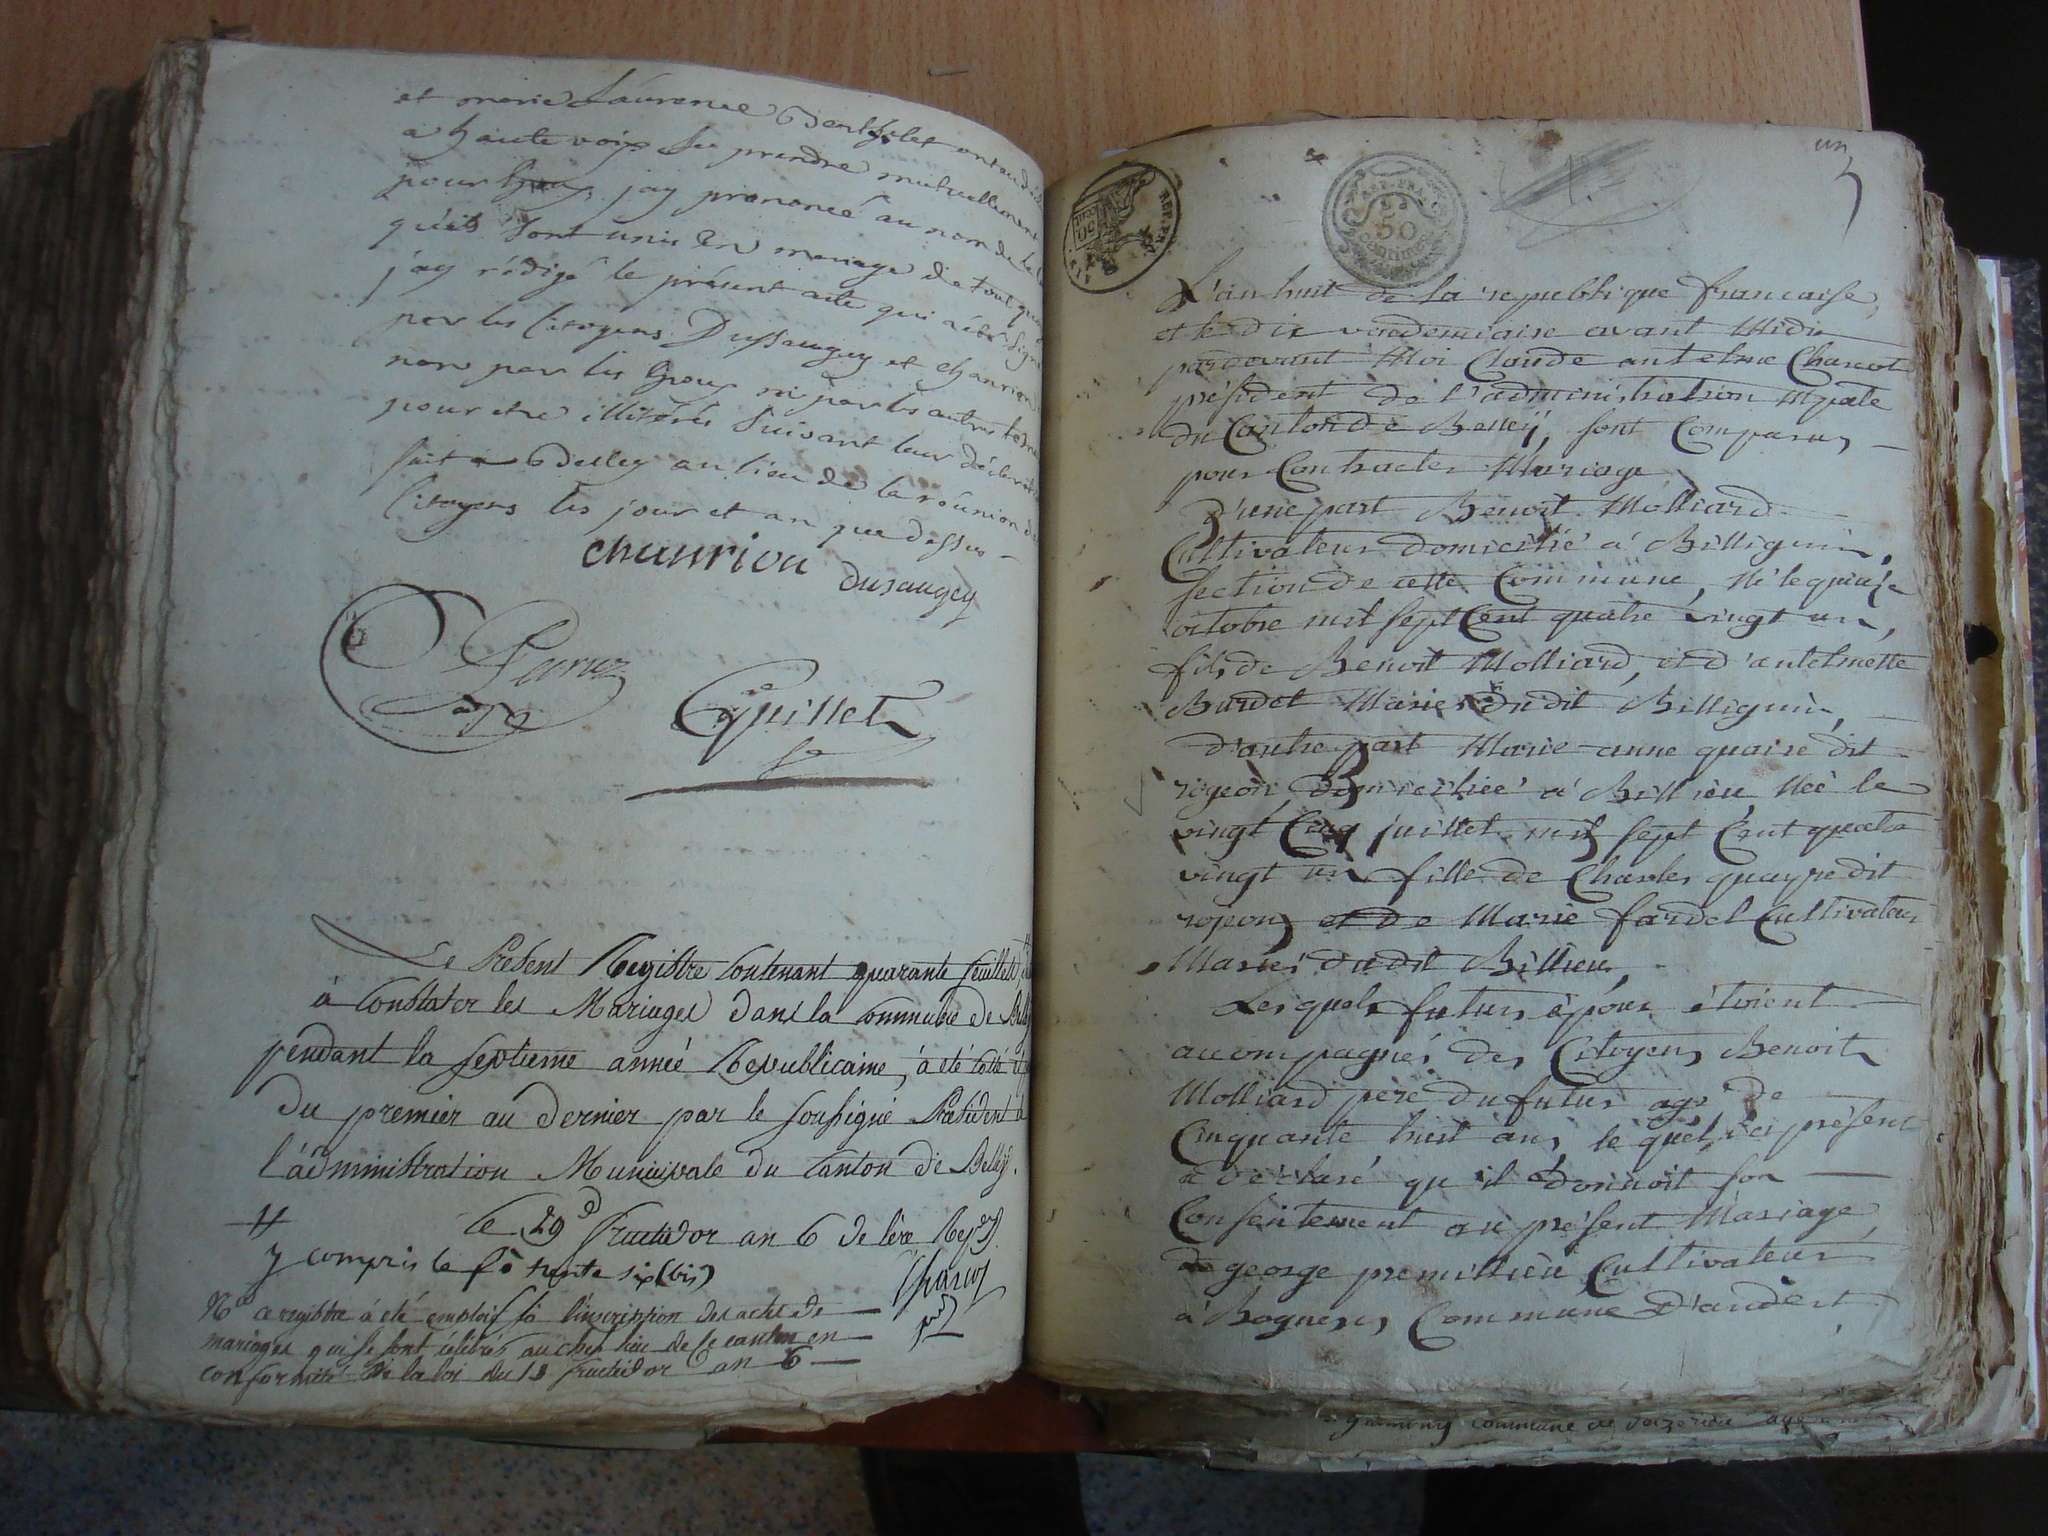 et marie Laurence Berthelet ont
à haute voix se prendre mutuellement
pour Epoux, j'ay prononcé au nom de la
qu'ils sont unis en mariage de tout quoy
j'ay rédigé le présent acte qui a été signé
par les Citoyens Dussaugey et chanrion
non par les Epoux ni par les autres
pour etre illitérés suivant leur
fait a Belley au lieu de la réunion
Citoyens les jour et an que dessus
chanriou
Dusaugey
Guillet
Le Présent Registre Contenant quarante feuillets
à Constater les Mariages dans la Commune de
pendant la Septieme année Republicaine, à été Cotté
du premier au dernier par le soussigné President de
l'administration Municipale du Canton de Belleÿ.
le 29 fructidor an 6 de l'ère
y compris le fo trente six (bis)
Charcot
Nta ce registre à été employé à l'inscription des actes de
mariages qui se sont célébrés au chef lieu de ce canton en
conformité de la loi du 13 fructidor an 6
un
REP. FRA.
REP. FRA.
50
L'an huit de la republique francaise,
et le dix vendemiaire avant Midi
pardevant Moi Claude antelme Charcot
président de l'administration Mpale
du Canton de Belleÿ, sont Comparus
pour Contracter Mariage
D'une part Benoit Molliard
Cultivateur domicilié à Billignin,
section de cette Commune, Né le quinze
octobre mil sept Cent quatre vingt un,
fils de Benoit Molliard, et d'antelmette
Burdet Mariés dudit Billignin,
d'autre part Marie anne quaire dit
rojeon domiciliée à Billieu, Née le
vingt Cinq juillet mil sept Cent quatre
vingt un fille de Charles quayre dit
rojeon, et de Marie fardel Cultivateurs
Mariés dudit Billieu,
Lesquels futurs époux étoient
accompagnés des Citoyens Benoit
Molliard père du futur agé de
Cinquante huit ans, le quel ici présent
a déclaré qu'il donnoit son
Consentement au présent Mariage,
de george premillieu Cultivateur
à Rogneux, Commune d'andert
commune de